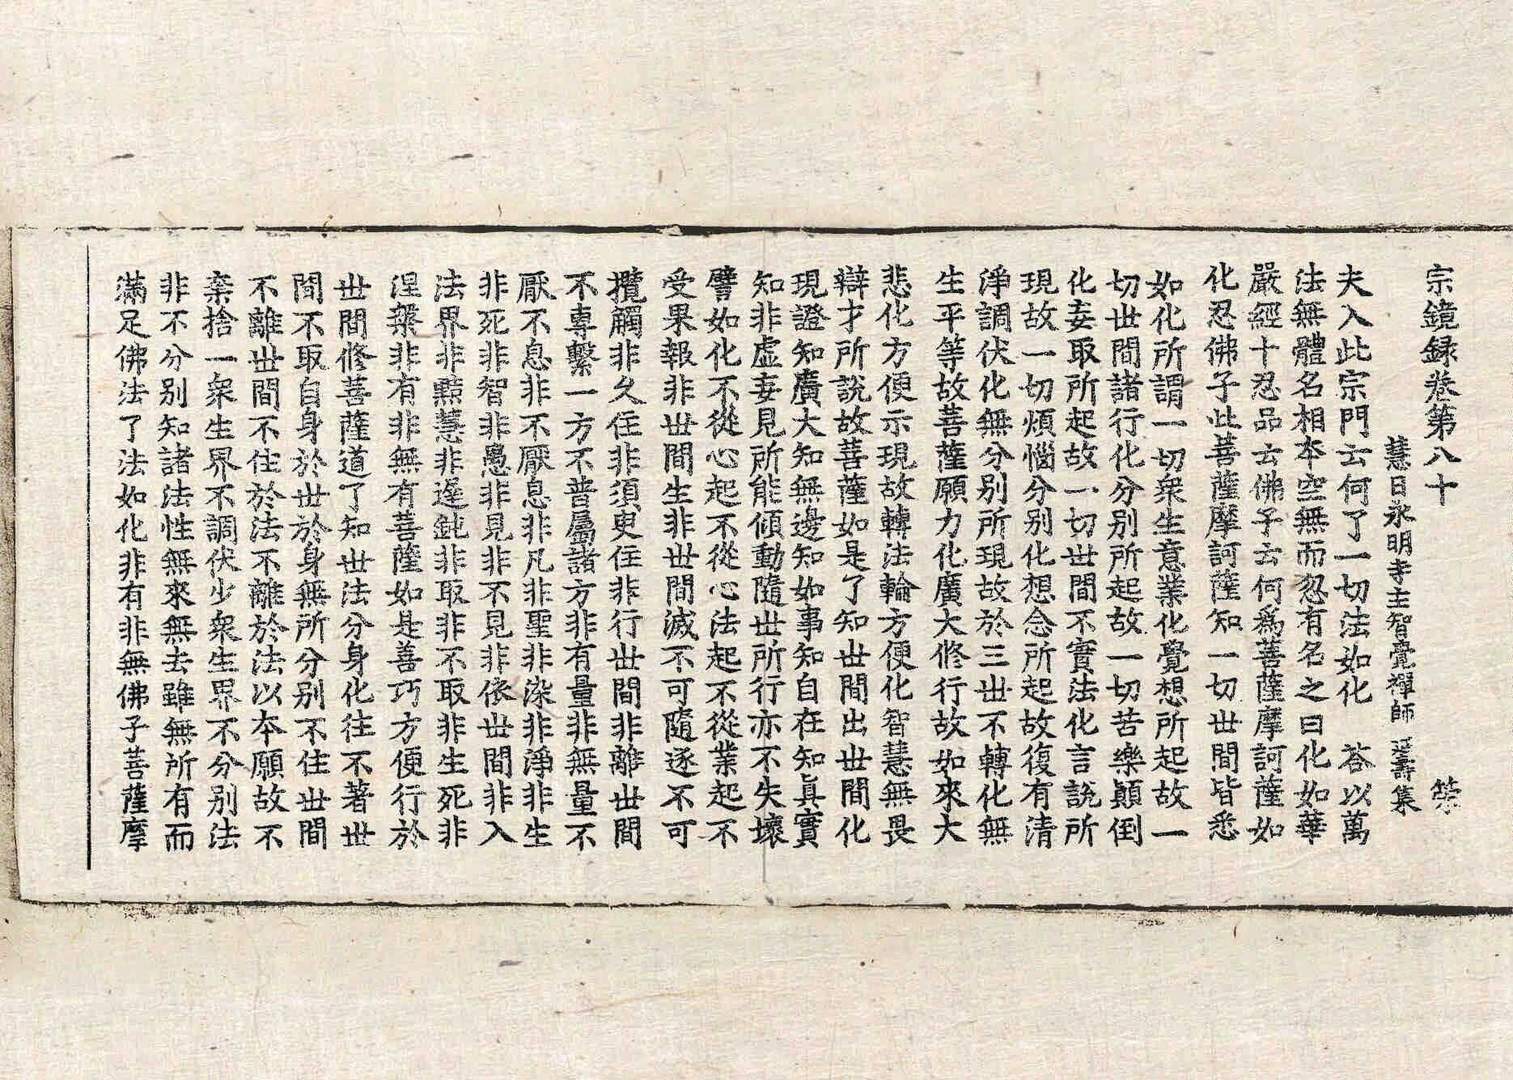 宗鏡録卷第八十
慧日永明寺主智覺禪師 延壽集
夫入此宗門云何了一切法如化 荅以萬
法無體名相本空無而忽有名之曰化如華
嚴經十忍品云佛子云何爲菩薩摩訶薩如
化忍佛子此菩薩摩訶薩知一切世間皆悉
如化所謂一切衆生意業化覺想所起故一
切世間諸行化分別所起故一切苦樂顛倒
化妄取所起故一切世間不實法化言說所
現故一切煩惱分別化想念所起故復有清
淨調伏化無分別所現故於三世不轉化無
生平等故菩薩願力化廣大修行故如來大
悲化方便示現故轉法輪方便化智慧無畏
辯才所說故菩薩如是了知世間出世間化
現證知廣大知無邊知如事知自在知真實
知非虛妄見所能傾動隨世所行亦不失壞
譬如化不從心起不從心法起不從業起不
受果報非世間生非世間滅不可隨逐不可
攬觸非久住非須臾住非行世間非離世間
不專繫一方不普屬諸方非有量非無量不
厭不息非不厭息非凡非聖非染非淨非生
非死非智非愚非見非不見非依世間非入
法界非黠慧非遲鈍非取非不取非生死非
涅槃非有非無有菩薩如是善巧方便行於
世間修菩薩道了知世法分身化往不著世
間不取自身於世於身無所分別不住世間
不離世間不住於法不離於法以本願故不
棄捨一衆生界不調伏少衆生界不分別法
非不分別知諸法性無來無去雖無所有而
滿足佛法了法如化非有非無佛子菩薩摩